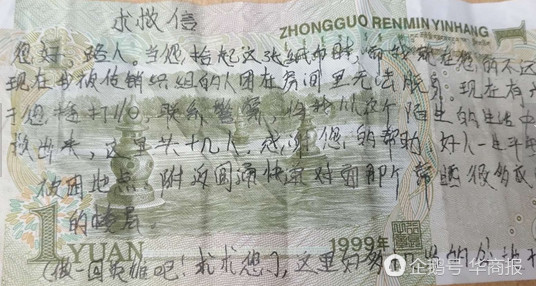 求救信
ZHONGGUO RENMIN YINHANG
您好,路人。当您拾起这张纸币时,而我就在您的不远
现在我被传销组织的人困在房间里无法脱身。现在有
于您,拨打110,联系警察,将我从这个陌生的生活中
救出来,这里共十几人,感谢您的帮助,好人一生平
被困地点,附近圆通快递对面那个
的楼层。
1
YUAN
1999年
(做一回英雄吧!求求您了,这里好多
企鹅号 华商报